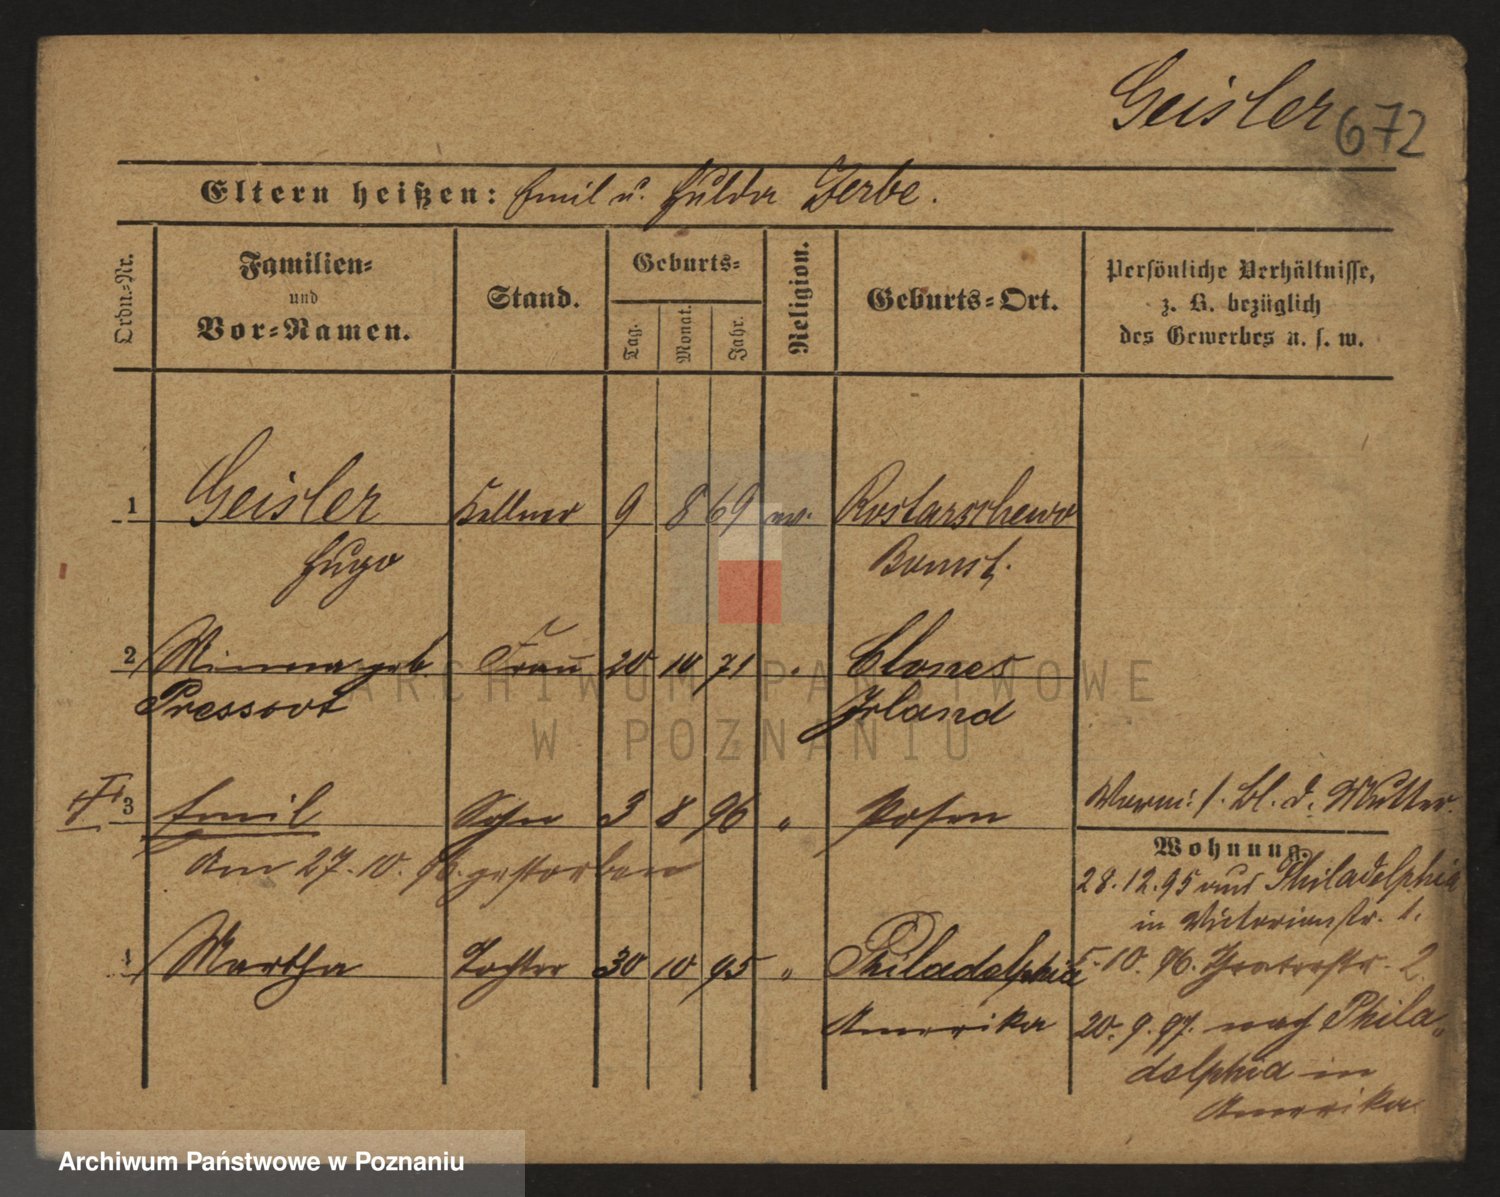 Geisler 672
Eltern heißen: Emil u. Hulda Zerbe.
Ordn.-Nr.
Familien-
und
Vor-Namen.
Stand.
Geburts-
Tag.
Monat.
Jahr.
Religion.
Geburts-Ort.
Persönliche Verhältnisse,
z. B. bezüglich
des Gewerbes u. s. w.
1 Geisler Kellner 9 8 69 ev. Rostarschewo
Hugo Bomst.
2 Minna geb. Frau 20 10 71 " Clones
Pressovt Irland
3 Emil Sohn 3 8 96 " Posen
Am 27.10. 96. gestorben
4 Martha Tochter 30 10 95 " Philadelphia
Amerika
Verm: s. Bl. d. Mutter.
Wohnung.
28.12.95 aus Philadelphia
in Victoriastr. 1.
5.10.96. Theaterstr. 2.
20.9.97. nach Phila-
delphia in
Amerika
ARCHIWUM PAŃSTWOWE
W POZNANIU
Archiwum Państwowe w Poznaniu